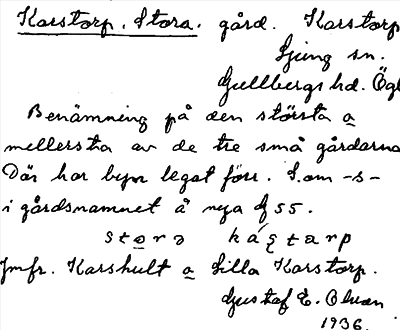 Karstorp, Stora. gård. Karstorp
Ljung sn.
Gullbergs hd. Ögl
Benämning på den största a
mellersta av de tre små gårdarna
Där har byn legat förr. S.om -s-
i gårdsnamnet å nya 55.
stora kástarp
Jmfr. Karshult a Lilla Karstorp.
Gustaf E. Olsson
1936.